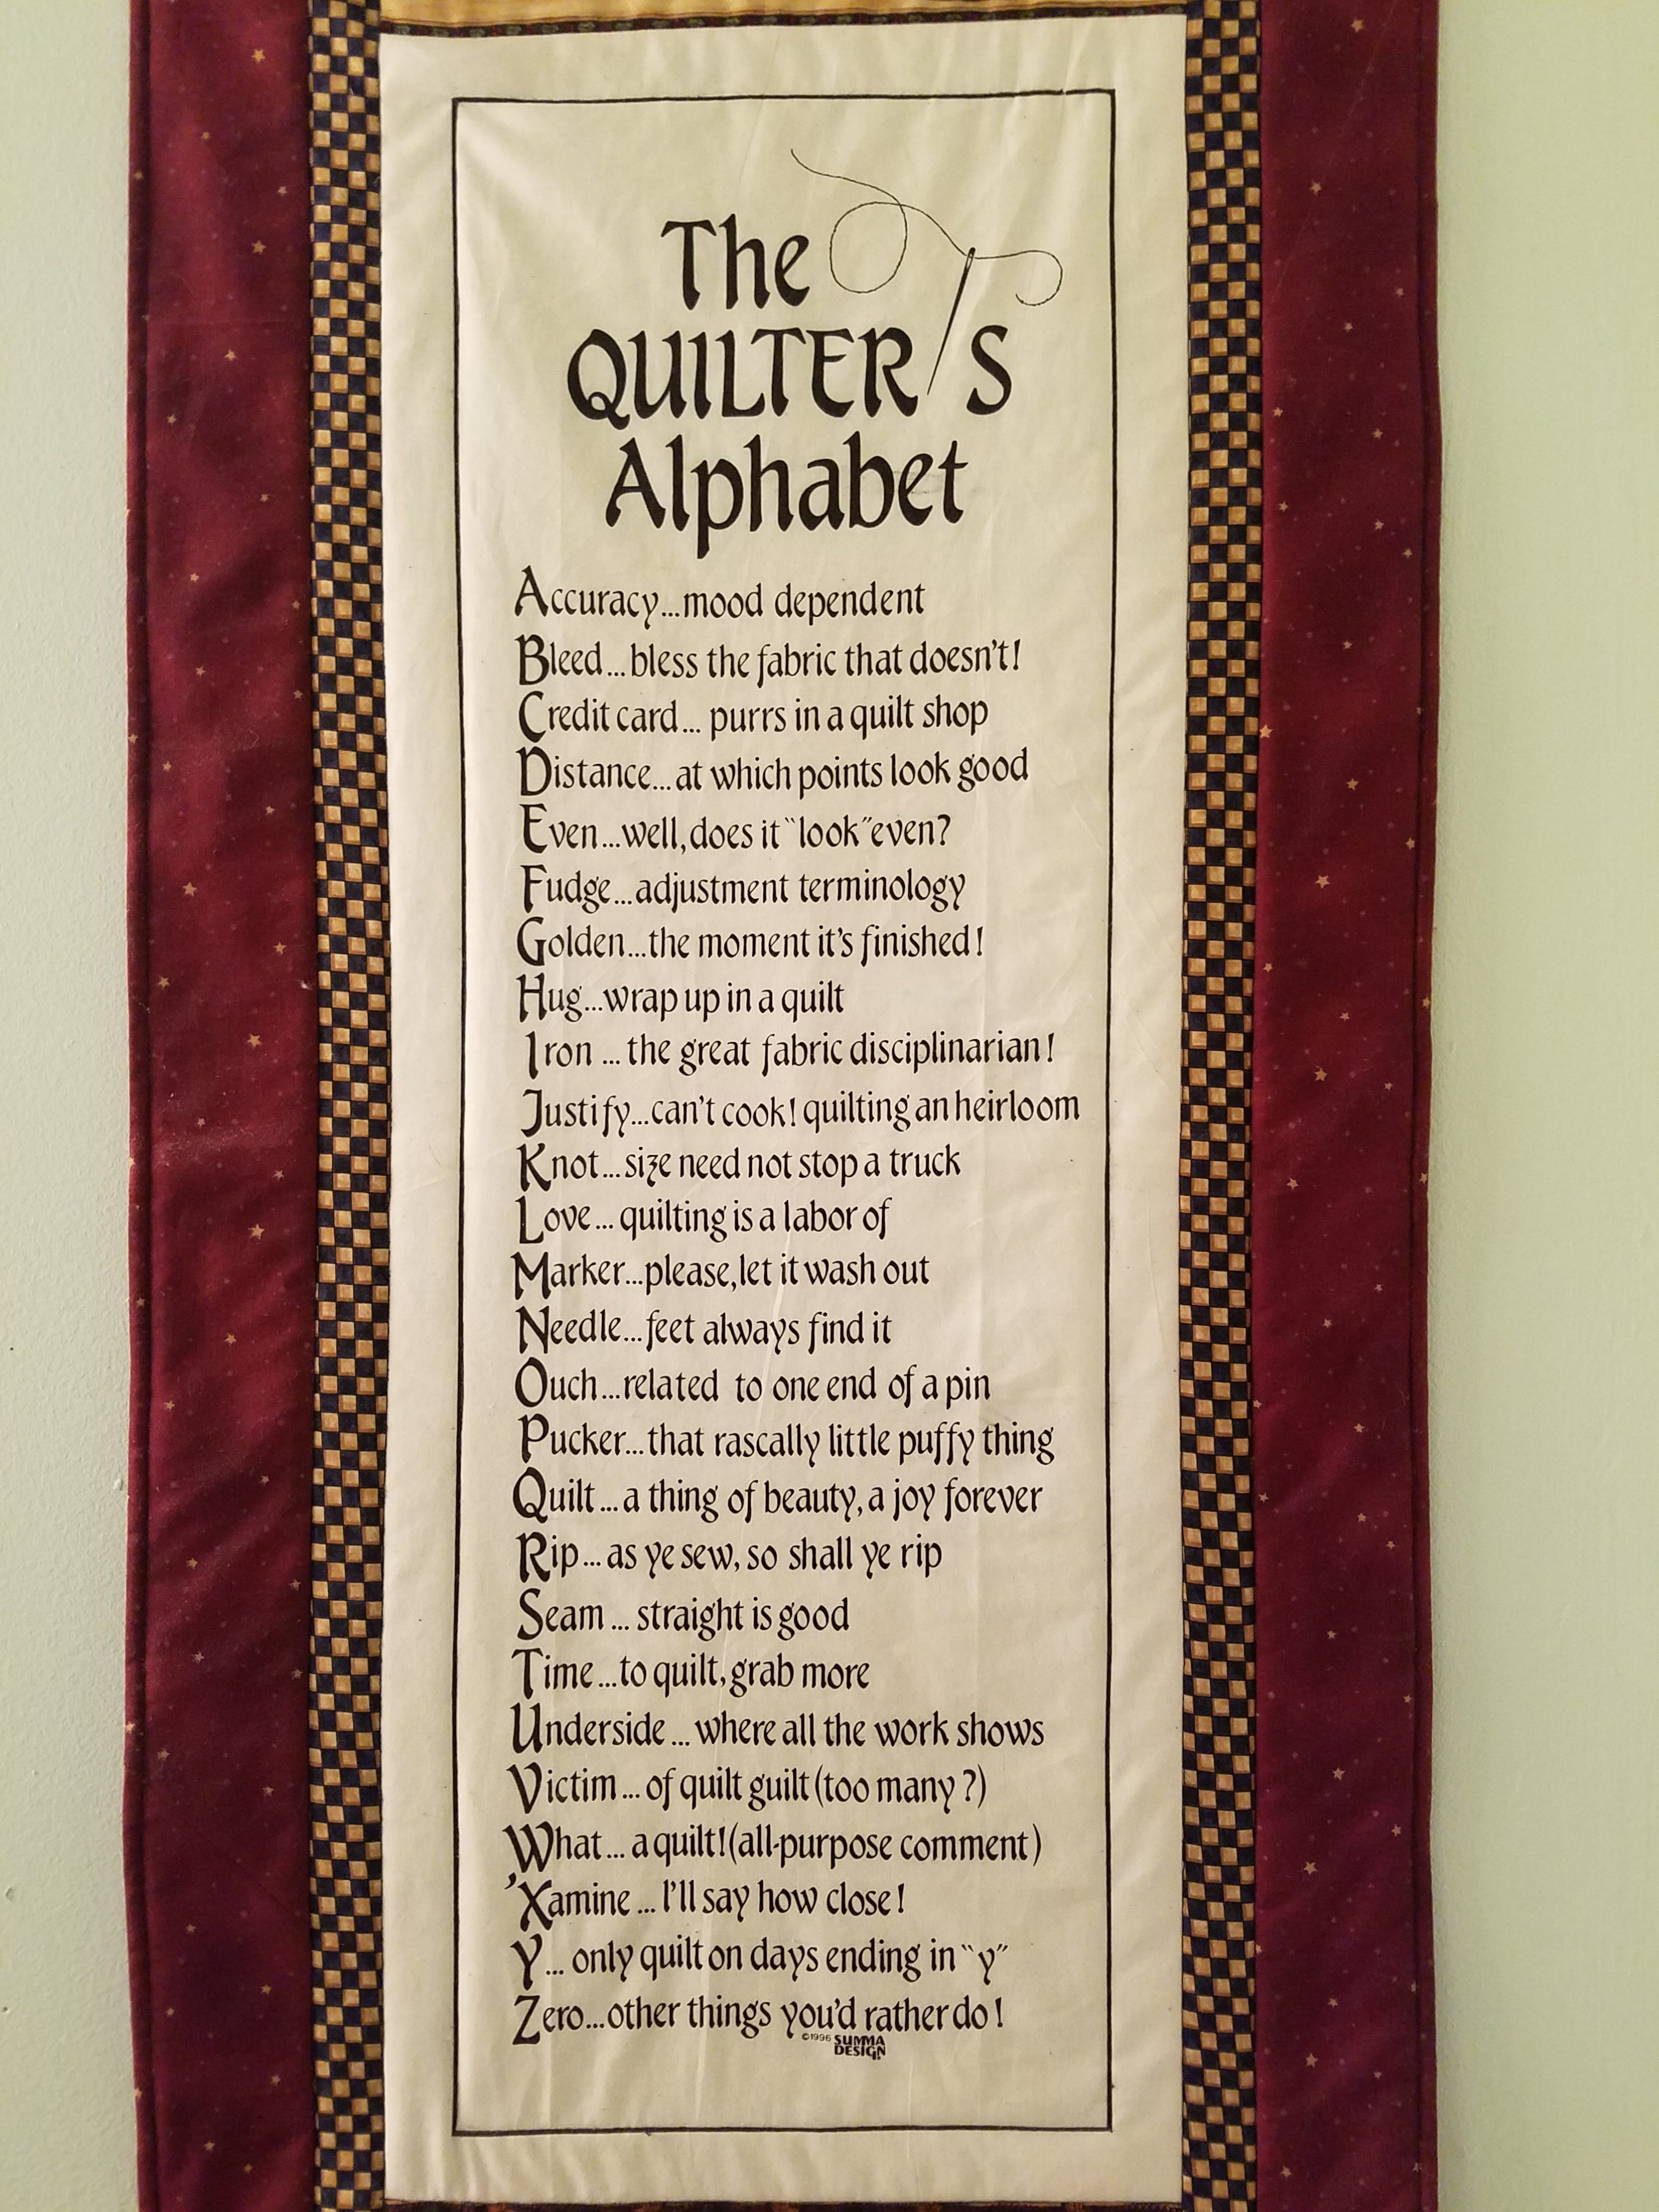 The
QUILTER'S
Alphabet
Accuracy...mood dependent
Bleed...bless the fabric that doesn't!
Credit card... purrs in a quilt shop
Distance...at which points look good
Even...well, does it "look" even?
Fudge...adjustment terminology
Golden...the moment it's finished!
Hug...wrap up in a quilt
Iron ... the great fabric disciplinarian!
Justify...can't cook! quilting an heirloom
Knot...size need not stop a truck
Love... quilting is a labor of
Marker...please, let it wash out
Needle...feet always find it
Ouch...related to one end of a pin
Pucker...that rascally little puffy thing
Quilt... a thing of beauty, a joy forever
Rip... as ye sew, so shall ye rip
Seam ... straight is good
Time ...to quilt, grab more
Underside ... where all the work shows
Victim ... of quilt guilt (too many?)
What... a quilt! (all-purpose comment)
'Xamine ... I'll say how close!
Y... only quilt on days ending in "y"
Zero...other things you'd rather do!
©1996 SUMMA
DESIGN